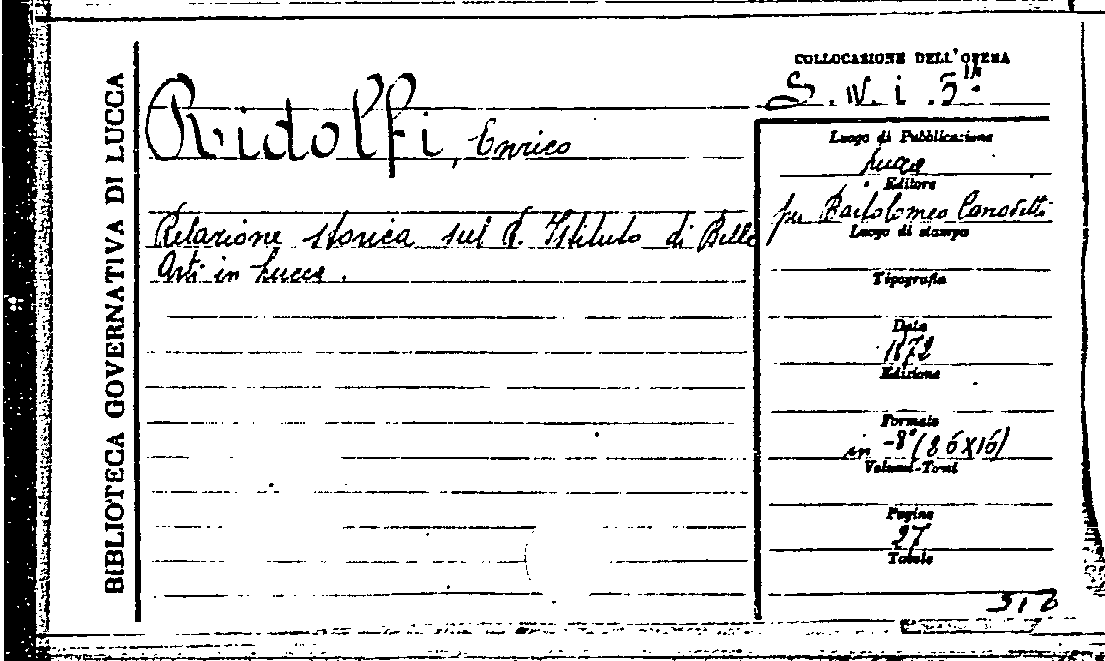 BIBLIOTECA GOVERNATIVA DI LUCCA
Ridolfi, Enrico
Relazione storica sul R. Istituto di Belle
Arti in Lucca.
COLLOCAZIONE DELL'OPERA
Luogo di Pubblicazione
Lucca
Editore
per Bartolomeo Canovetti
Luogo di stampa
Tipografia
Data
1872
Edizione
Formato
in -8°
Volumi-Tomi
Pagine
27
Tavole